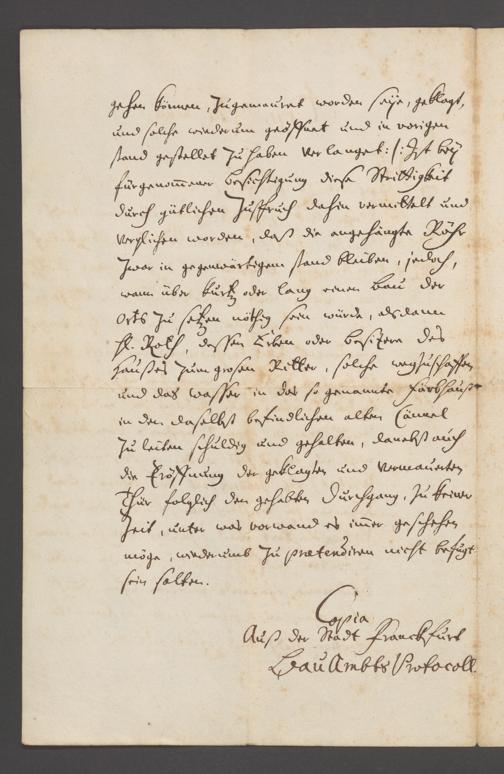 gehen können, zugemauret worden seye, geklagt,
und solche wiederum geöffnet und in vorigen
stand gestellet zu haben verlanget: /: Ist bey
fürgenommener besichtigung diese Strittigkeit
durch gütlichen Zuspruch dahin vermittelt und
verglichen worden, daß die angehängte Röhr
zwar in gegenwärtigem stand bleiben, jedoch,
wann über kurtz oder lang einen bau der
Orts zu setzen nöthig sein würde, alsdann
H. Roth, dessen Erben oder besitzere des
Haußes zum grosen Ritter, solche wegzuschaffen
und das wasser in das so genannte Färbhauß
in den daselbst befindlichen alten Cannel
zu leiten schuldig und gehalten, danebst auch
die Eröffnung der geklagten und vermauerten
Thür folglich den gehabten Durchgang, zu keiner
Zeit, unter was vorwand es immer geschehen
möge, wiederumb zu praetendiren nicht befugt
sein sollen.
Copia
Auß der Stadt Franckfurt
BauAmbts Protocoll